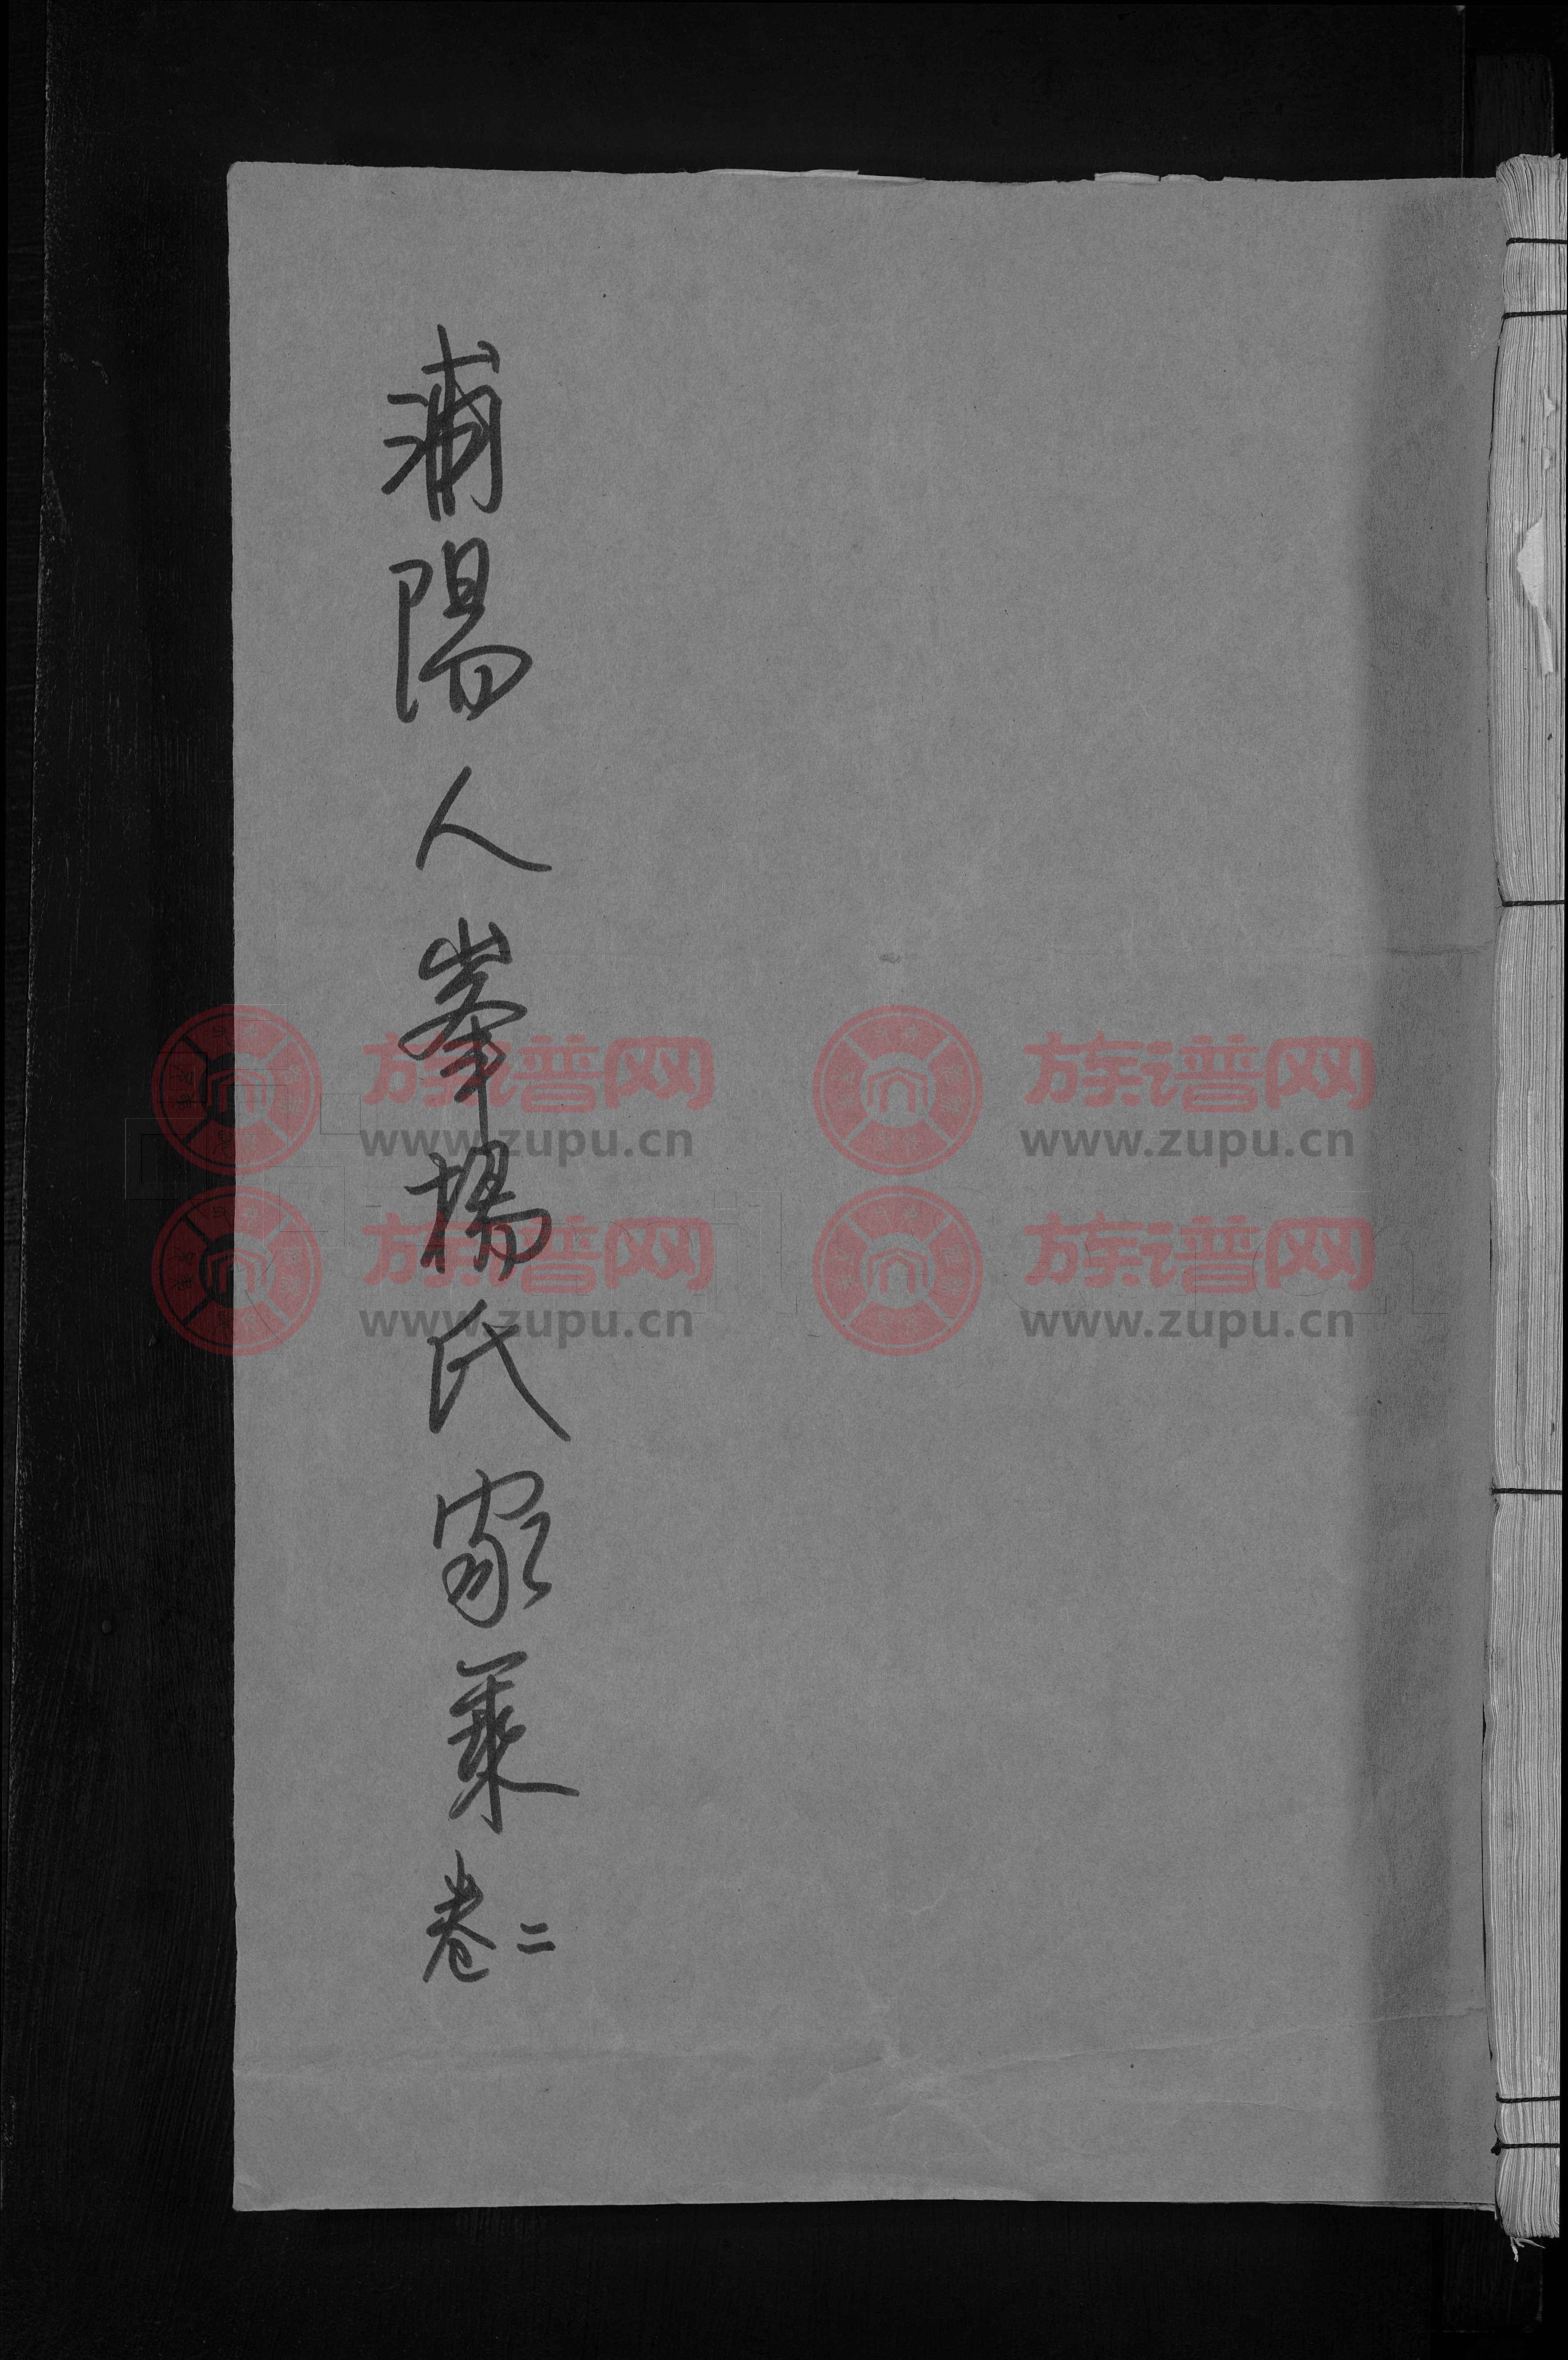 浦陽人峯楊氏家乘卷二
族谱网 族谱网
www.zupu.cn www.zupu.cn
族谱网 族谱网
www.zupu.cn www.zupu.cn